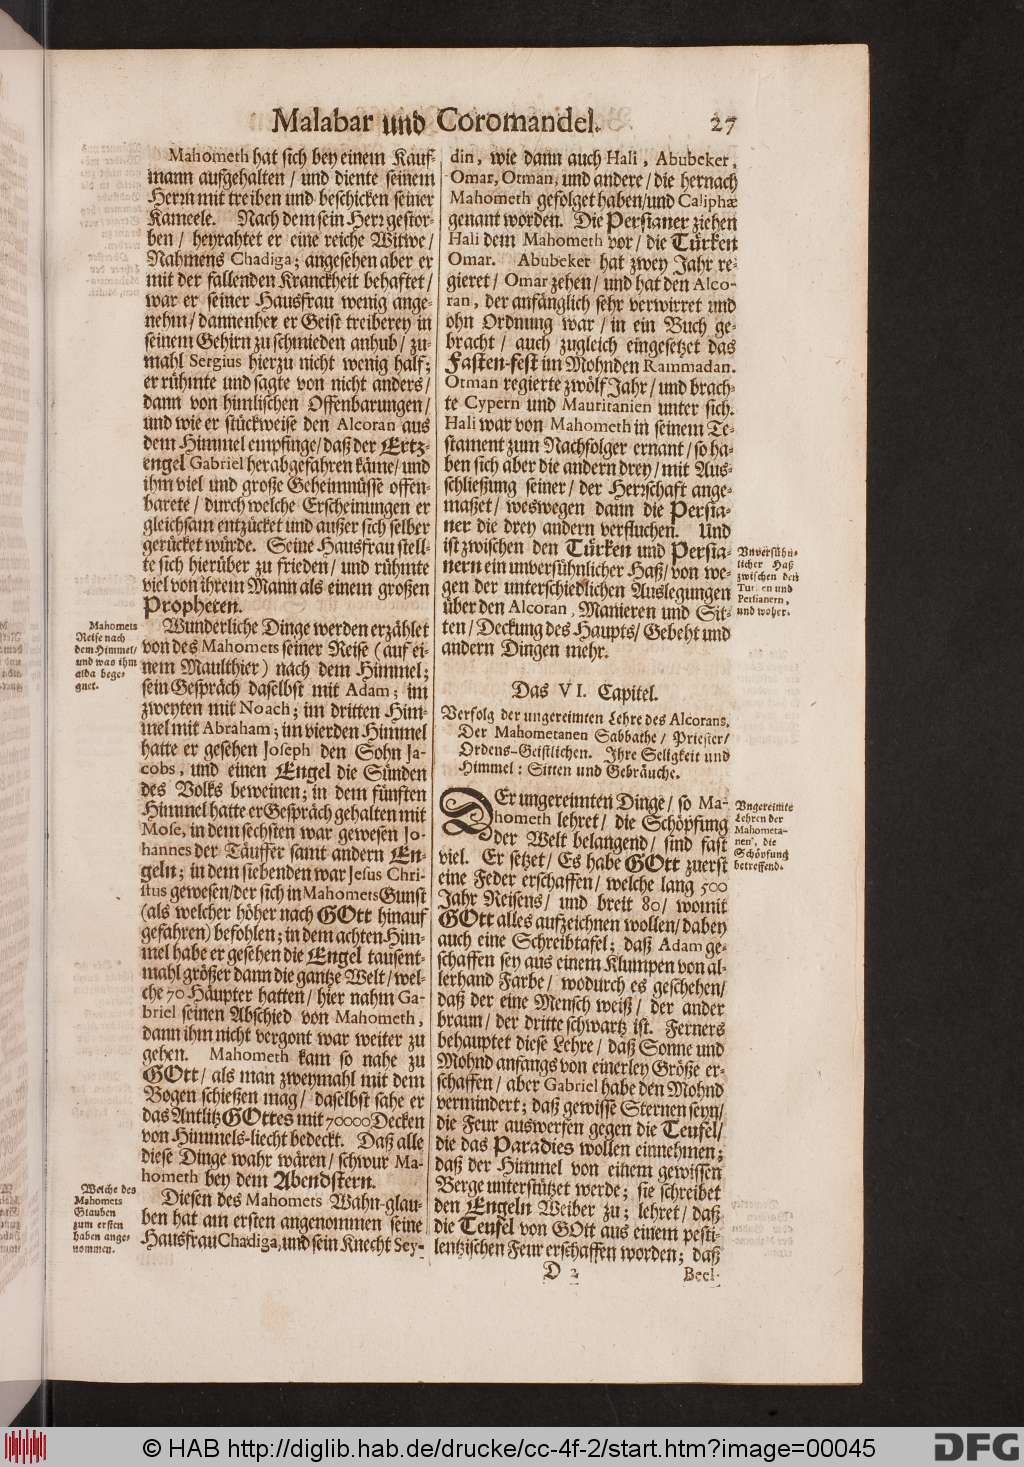 Malabar und Coromandel. 27
Mahometh hat sich bey einem Kauf-
mann aufgehalten / und diente seinem
Herrn mit treiben und beschicken seiner
Kameele. Nach dem sein Herr gestor-
ben / heyrahtet er eine reiche Witwe /
Nahmens Chadiga; angesehen aber er
mit der fallenden Kranckheit behaftet /
war er seiner Hausfrau wenig ange-
nehm / dannenher er Geist treiberey in
seinem Gehirn zu schmieden anhub / zu-
mahl Sergius hierzu nicht wenig half;
er rühmte und sagte von nicht anders /
dann von himlischen Offenbarungen /
und wie er stückweise den Alcoran aus
dem Himmel empfinge / daß der Ertz-
engel Gabriel herabgefahren käme / und
ihm viel und große Geheimnüsse offen-
barete / durch welche Erscheinungen er
gleichsam entzücket und außer sich selber
gerücket würde. Seine Hausfrau stell-
te sich hierüber zu frieden / und rühmte
viel von ihrem Mann als einem großen
Propheten.
Mahomets
Reise nach
dem Himmel /
und was ihm
alda bege-
gnet.
Wunderliche Dinge werden erzählet
von des Mahomets seiner Reise (auf ei-
nem Maulthier) nach dem Himmel;
sein Gespräch daselbst mit Adam; im
zweyten mit Noach; im dritten Him-
mel mit Abraham; im vierden Himmel
hatte er gesehen Joseph den Sohn Ja-
cobs, und einen Engel die Sünden
des Volks beweinen; in dem fünften
Himmel hatte er Gespräch gehalten mit
Mose, in dem sechsten war gewesen Jo-
hannes der Täuffer samt andern En-
geln; in dem siebenden war Jesus Chri-
stus gewesen / der sich in Mahomets Gunst
(als welcher höher nach GOtt hinauf
gefahren) befohlen; in dem achten Him-
mel habe er gesehen die Engel tausent-
mahl größer dann die gantze Welt / wel-
che 70 Häupter hatten / hier nahm Ga-
briel seinen Abschied von Mahometh,
dann ihm nicht vergont war weiter zu
gehen. Mahometh kam so nahe zu
GOtt / als man zweymahl mit dem
Bogen schießen mag / daselbst sahe er
das Antlitz GOttes mit 70000 Decken
von Himmels-liecht bedeckt. Daß alle
diese Dinge wahr wären / schwur Ma-
hometh bey dem Abendstern.
Welche des
Mahomets
Glauben
zum ersten
haben ange-
nommen.
Diesen des Mahomets Wahn-glau-
ben hat am ersten angenommen seine
Hausfrau Chadiga, und sein Knecht Sey-
din, wie dann auch Hali, Abubeker,
Omar, Otman, und andere / die hernach
Mahometh gefolget haben / und Caliphæ
genant worden. Die Persianer ziehen
Hali dem Mahometh vor / die Türken
Omar. Abubeker hat zwey Jahr re-
gieret / Omar zehen / und hat den Alco-
ran, der anfänglich sehr verwirret und
ohn Ordnung war / in ein Buch ge-
bracht / auch zugleich eingesetzet das
Fasten-fest im Mohnden Rammadan.
Otman regierte zwölf Jahr / und brach-
te Cypern und Mauritanien unter sich.
Hali war von Mahometh in seinem Te-
stament zum Nachfolger ernant / so ha-
ben sich aber die andern drey / mit Aus-
schließung seiner / der Herrschaft ange-
maßet / weswegen dann die Persia-
ner die drey andern verfluchen. Und
ist zwischen den Türken und Persia-
nern ein unversühnlicher Haß / von we-
gen der unterschiedlichen Auslegungen
über den Alcoran, Manieren und Sit-
ten / Deckung des Haupts / Gebeht und
andern Dingen mehr.
Unversühn-
licher Haß
zwischen den
Turken und
Persianern,
und woher.
Das VI. Capitel.
Verfolg der ungereimten Lehre des Alcorans.
Der Mahometanen Sabbathe / Priester /
Ordens-Geistlichen. Ihre Seligkeit und
Himmel: Sitten und Gebräuche.
DEr ungereimten Dinge / so Ma-
hometh lehret / die Schöpfung
der Welt belangend / sind fast
viel. Er setzet / Es habe GOtt zuerst
eine Feder erschaffen / welche lang 500
Jahr Reisens / und breit 80 / womit
GOtt alles aufzeichnen wollen / dabey
auch eine Schreibtafel; daß Adam ge-
schaffen sey aus einem Klumpen von al-
lerhand Farbe / wodurch es geschehen /
daß der eine Mensch weiß / der ander
braun / der dritte schwartz ist. Ferners
behauptet diese Lehre / daß Sonne und
Mohnd anfangs von einerley Größe er-
schaffen / aber Gabriel habe den Mohnd
vermindert; daß gewisse Sternen seyn /
die Feur auswerfen gegen die Teufel /
die das Paradies wollen einnehmen;
daß der Himmel von einem gewissen
Berge unterstützet werde; sie schreibet
den Engeln Weiber zu; lehret / daß
die Teufel von GOtt aus einem pesti-
lentzischen Feur erschaffen worden; daß
Ungereimte
Lehren der
Mahometa-
nen, die
Schöpfung
betreffend.
D 2 Beel-
© HAB http://diglib.hab.de/drucke/cc-4f-2/start.htm?image=00045
DFG